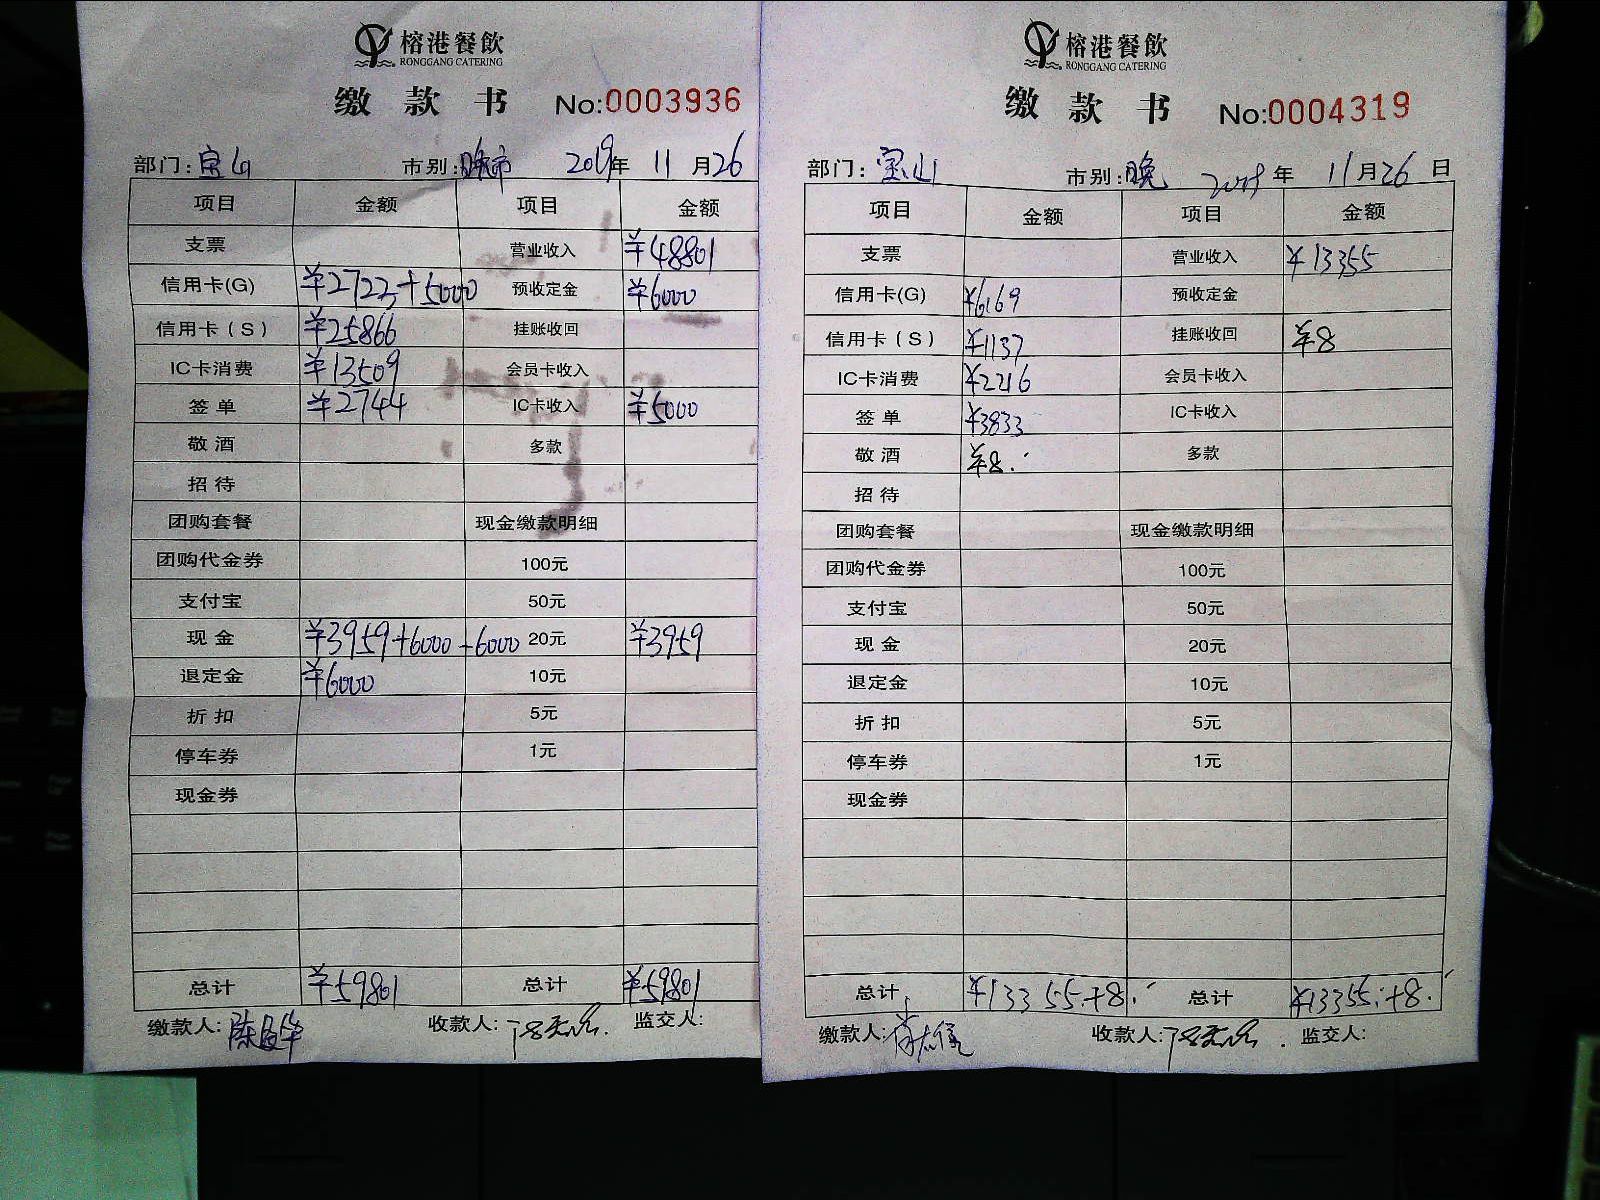 榕港餐飲
RONGGANG CATERING
缴款书 No:0003936
部门:宝山 市别:晚市 2019年 11月26
项目 金额 项目 金额
支票 营业收入 ¥48801
信用卡(G) ¥2723+5000 预收定金 ¥6000
信用卡(S) ¥25866 挂账收回
IC卡消费 ¥13509 会员卡收入
签单 ¥2744 IC卡收入 ¥5000
敬酒 多款
招待
团购套餐 现金缴款明细
团购代金券 100元
支付宝 50元
现金 ¥3959+6000-6000 20元 ¥3959
退定金 ¥6000 10元
折扣 5元
停车券 1元
现金券
总计 ¥59801 总计 ¥59801
缴款人: 收款人: 监交人:
榕港餐飲
RONGGANG CATERING
缴款书 No:0004319
部门:宝山 市别:晚 2019年 11月26日
项目 金额 项目 金额
支票 营业收入 ¥13355
信用卡(G) ¥6169 预收定金
信用卡(S) ¥1137 挂账收回 ¥8
IC卡消费 ¥2216 会员卡收入
签单 ¥3833 IC卡收入
敬酒 ¥8. 多款
招待
团购套餐 现金缴款明细
团购代金券 100元
支付宝 50元
现金 20元
退定金 10元
折扣 5元
停车券 1元
现金券
总计 ¥13355.+8. 总计 ¥13355.+8.
缴款人: 收款人: 监交人: